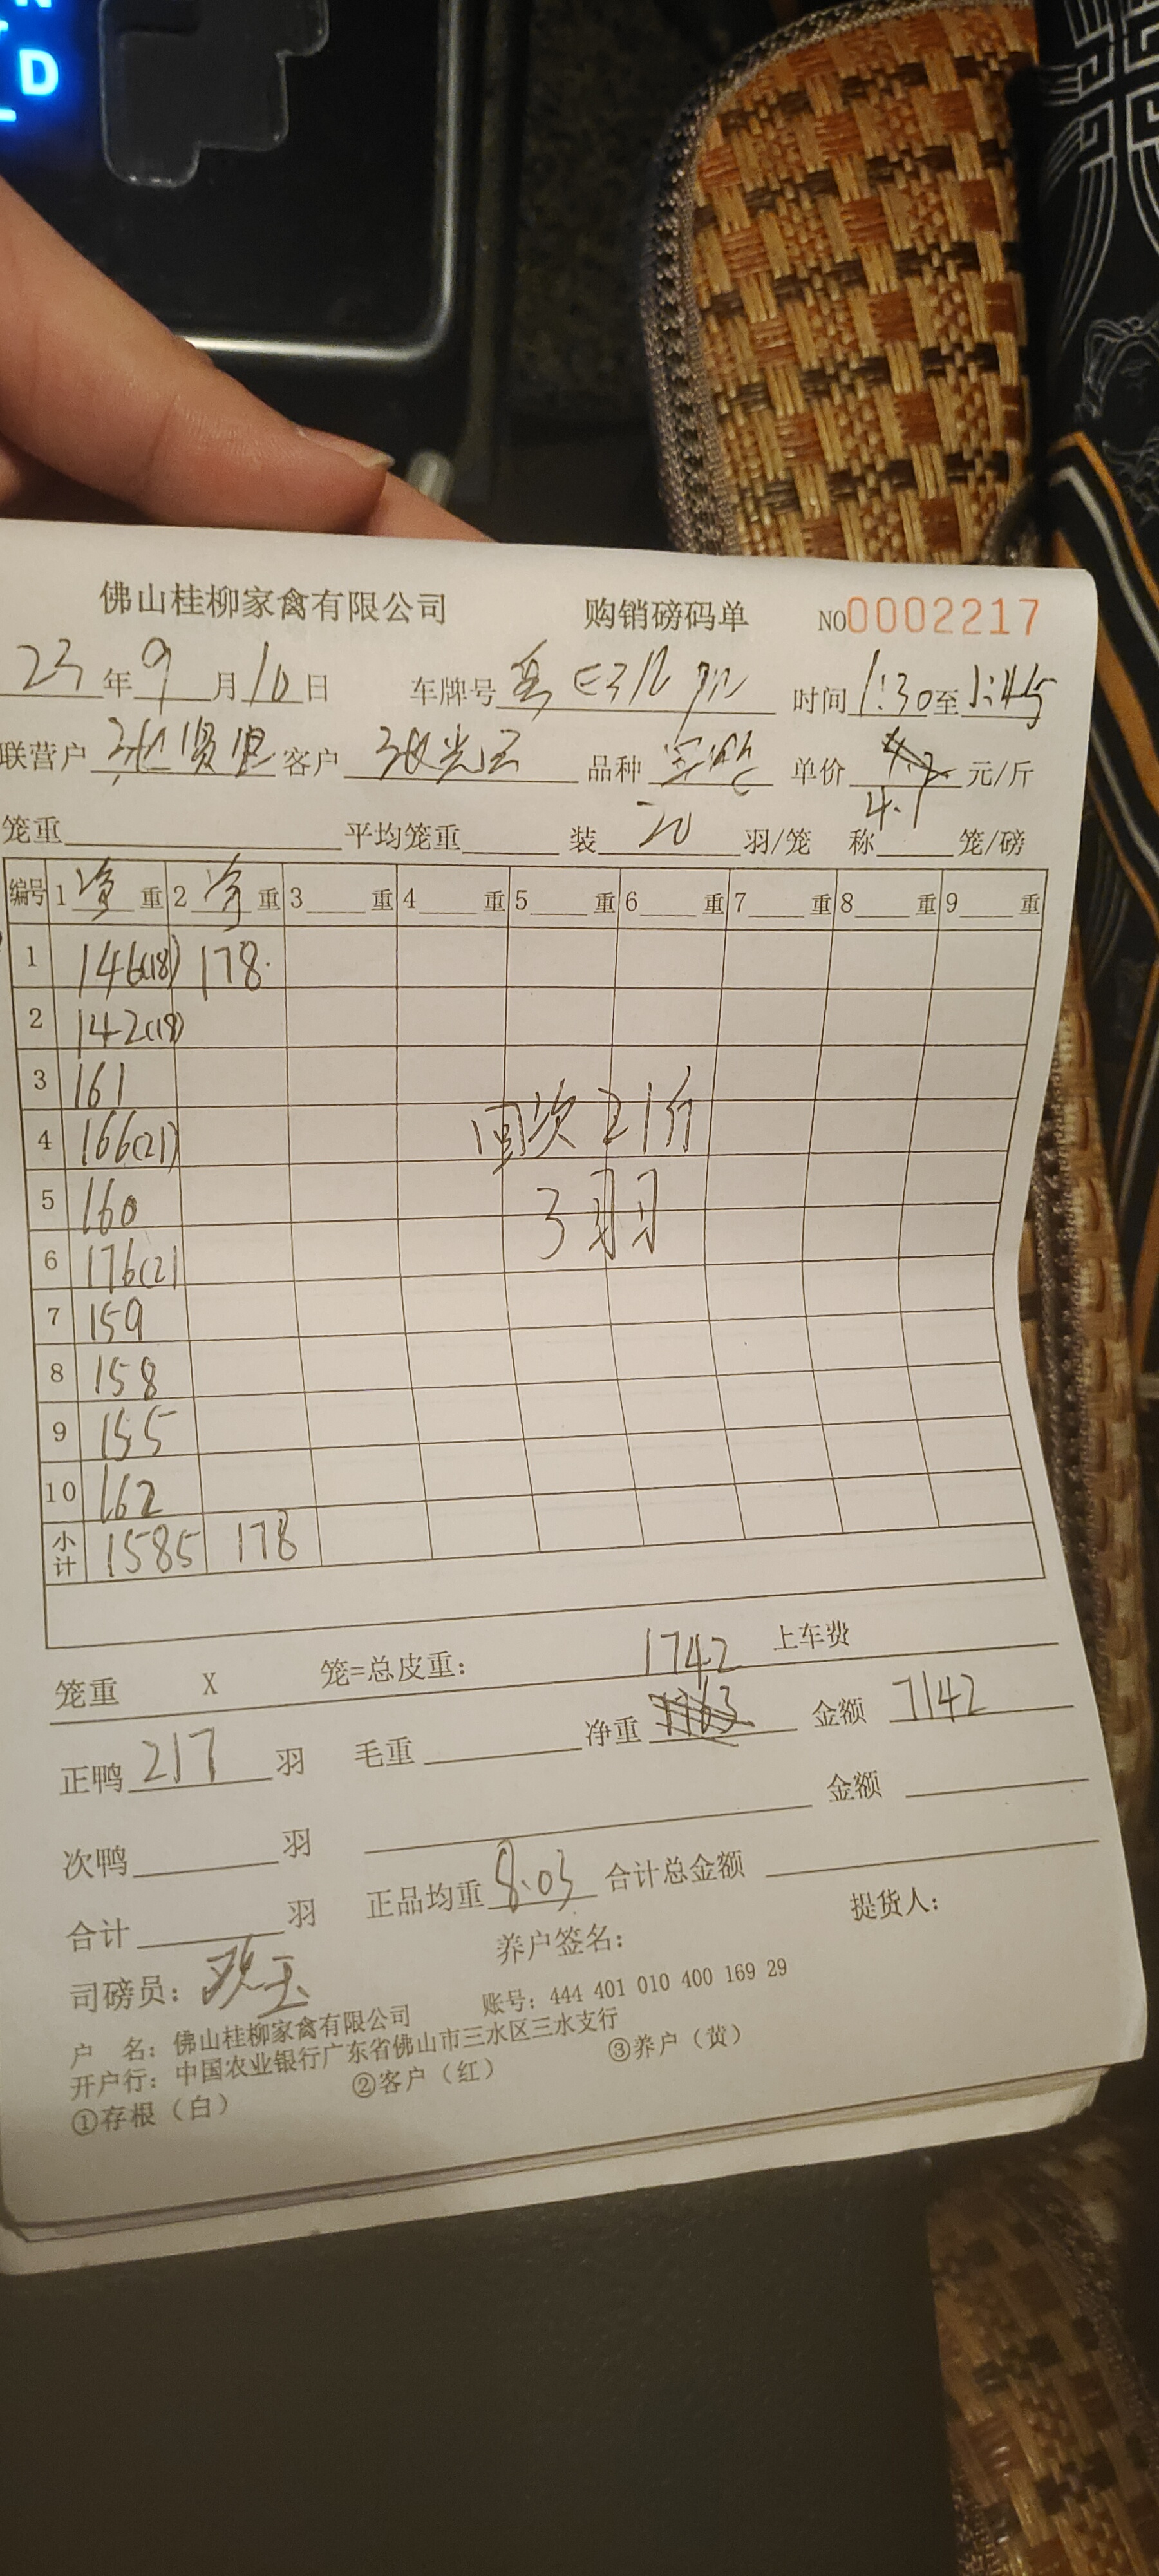 D
佛山桂柳家禽有限公司 购销磅码单 NO0002217
23年9月10日 车牌号 时间1:30至1:45
联营户 客户 品种 单价 4.2 元/斤
4.1
笼重 平均笼重 装20羽/笼 称 笼/磅
编号 1净重 2净重 3 重 4 重 5 重 6 重 7 重 8 重 9 重
1 146(18) 178.
2 142(18)
3 161
4 166(21)
5 160
6 176(21
7 159
8 158
9 155
10 162
小计 1585 178
回次21斤
3羽
笼重 X 笼=总皮重: 1742 上车费
正鸭217羽 毛重 净重1763 金额7142
次鸭 羽 金额
合计 羽 正品均重8.03 合计总金额
司磅员: 养户签名: 提货人:
户 名: 佛山桂柳家禽有限公司 账号: 444 401 010 400 169 29
开户行: 中国农业银行广东省佛山市三水区三水支行
①存根（白） ②客户（红） ③养户（黄）